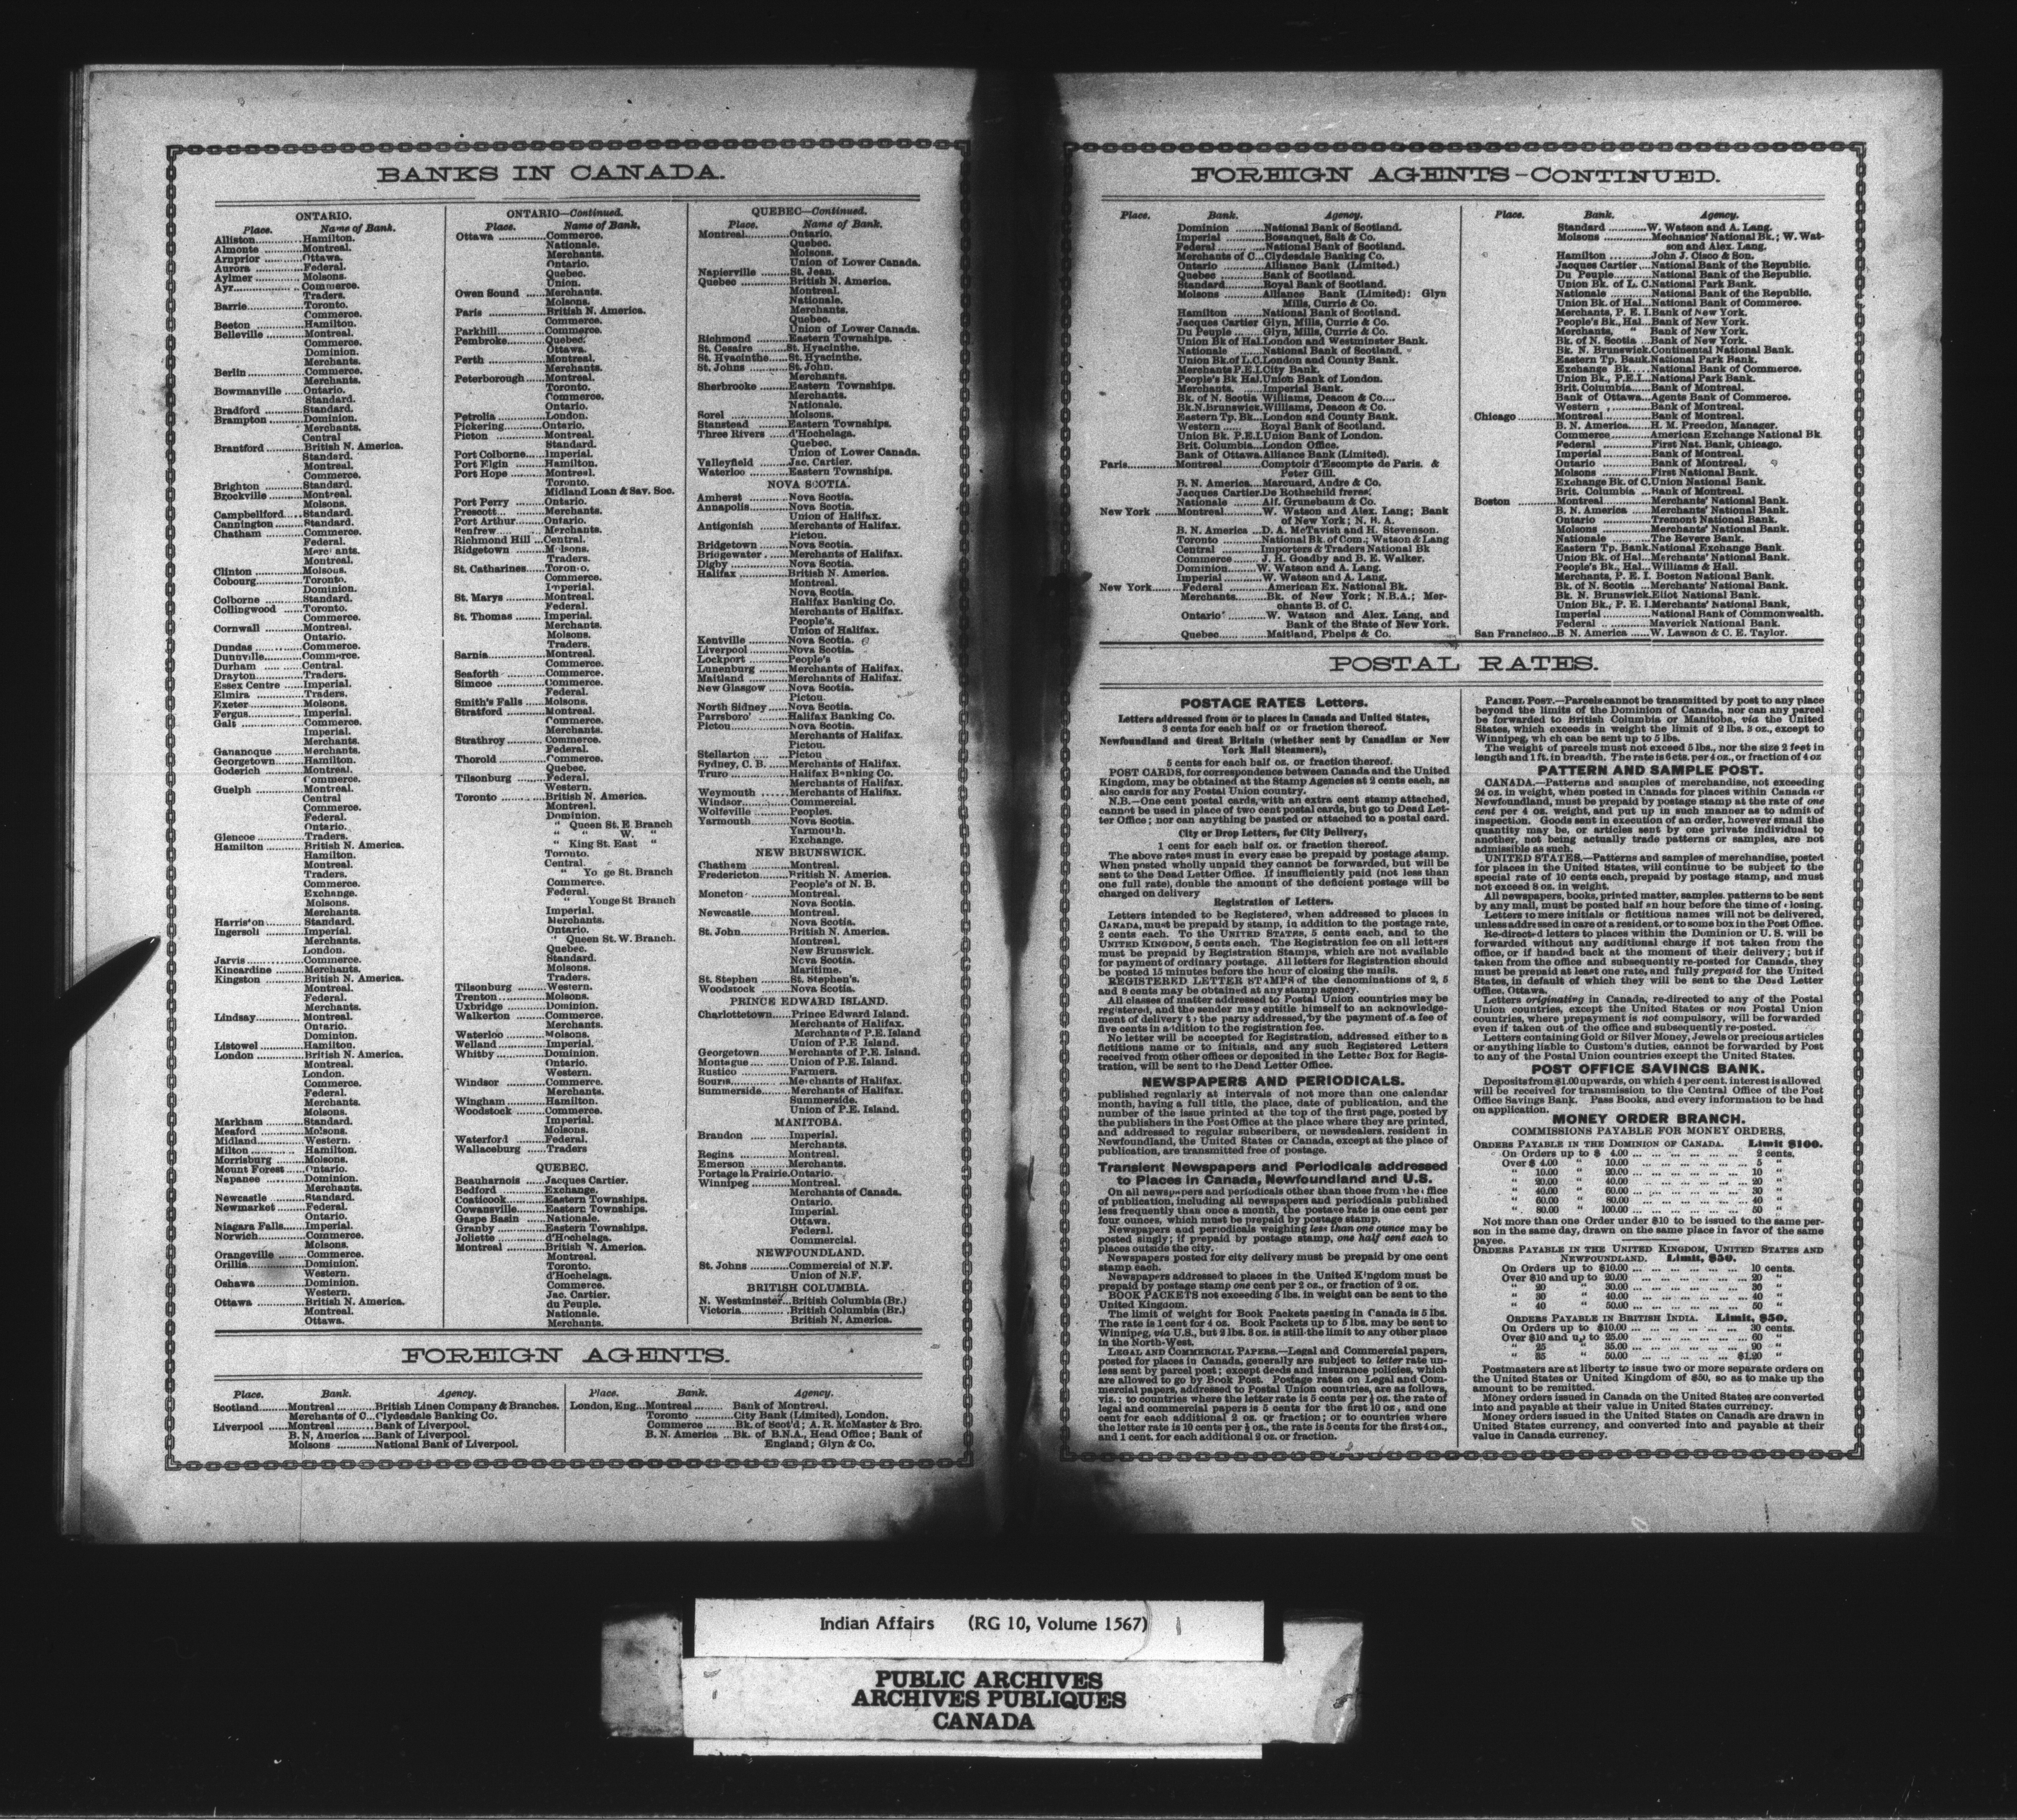 BANKS IN CANADA.
ONTARIO.
Place. Name of Bank.
Alliston............Hamilton.
Almonte ..........Montreal.
Arnprior ..........Ottawa.
Aurora ............Federal.
Aylmer ............Molsons.
Ayr..................Commerce.
Traders.
Barrie..............Toronto.
Commerce.
Beeton ............Hamilton.
Belleville .........Montreal.
Commerce.
Dominion.
Merchants.
Berlin ..............Commerce.
Merchants.
Bowmanville .....Ontario.
Standard.
Bradford ..........Standard.
Brampton .........Dominion.
Merchants.
Central
Brantford .........British N. America.
Standard.
Montreal.
Commerce.
Brighton ..........Standard.
Brockville ........Montreal.
Molsons.
Campbellford....Standard.
Cannington .......Standard.
Chatham ..........Commerce.
Federal.
Merchants.
Montreal.
Clinton ............Molsons.
Cobourg...........Toronto.
Dominion.
Colborne ..........Standard.
Collingwood .....Toronto.
Commerce.
Cornwall ..........Montreal.
Ontario.
Dundas ............Commerce.
Dunnville.........Commerce.
Durham ............Central.
Drayton............Traders.
Essex Centre .....Imperial.
Elmira .............Traders.
Exeter..............Molsons.
Fergus..............Imperial.
Galt .................Commerce.
Imperial.
Merchants.
Gananoque .......Merchants.
Georgetown.......Hamilton.
Goderich ..........Montreal.
Commerce.
Guelph .............Montreal.
Central
Commerce.
Federal.
Ontario.
Glencoe ............Traders.
Hamilton ..........British N. America.
Hamilton.
Montreal.
Traders.
Commerce.
Exchange.
Molsons.
Merchants.
Harriston ..........Standard.
Ingersoll ...........Imperial.
Merchants.
London.
Jarvis...............Commerce.
Kincardine ........Merchants.
Kingston ...........British N. America.
Montreal.
Federal.
Merchants.
Lindsay.............Montreal.
Ontario.
Dominion.
Listowel ...........Hamilton.
London .............British N. America.
Montreal.
London.
Commerce.
Federal.
Merchants.
Molsons.
Markham ..........Standard.
Meaford ............Molsons.
Midland.............Western.
Milton ..............Hamilton.
Morrisburg ........Molsons.
Mount Forest .....Ontario.
Napanee ............Dominion.
Merchants.
Newcastle ..........Standard.
Newmarket ........Federal.
Ontario.
Niagara Falls......Imperial.
Norwich.............Commerce.
Molsons.
Orangeville ........Commerce.
Orillia ...............Dominion.
Western.
Oshawa .............Dominion.
Western.
Ottawa ..............British N. America.
Montreal.
Ottawa.
ONTARIO—Continued.
Place. Name of Bank.
Ottawa ..............Commerce.
Nationale.
Merchants.
Ontario.
Quebec.
Union.
Owen Sound .......Merchants.
Molsons.
Paris .................British N. America.
Commerce.
Parkhill.............Commerce.
Pembroke...........Quebec.
Ottawa.
Perth .................Montreal.
Merchants.
Peterborough ......Montreal.
Toronto.
Commerce.
Ontario.
Petrolia ..............London.
Pickering............Ontario.
Picton ................Montreal.
Standard.
Port Colborne......Imperial.
Port Elgin ..........Hamilton.
Port Hope ...........Montreal.
Toronto.
Midland Loan & Sav. Soc.
Port Perry ..........Ontario.
Prescott..............Merchants.
Port Arthur.........Ontario.
Renfrew..............Merchants.
Richmond Hill ...Central.
Ridgetown ..........Molsons.
Traders.
St. Catharines.....Toronto.
Commerce.
Imperial.
St. Marys ...........Montreal.
Federal.
St. Thomas .........Imperial.
Merchants.
Molsons.
Traders.
Sarnia................Montreal.
Commerce.
Seaforth ............Commerce.
Simcoe ..............Commerce.
Federal.
Smith's Falls ......Molsons.
Stratford ............Montreal.
Commerce.
Merchants.
Strathroy ...........Commerce.
Federal.
Thorold ..............Commerce.
Quebec.
Tilsonburg ..........Federal.
Western.
Toronto ..............British N. America.
Montreal.
Dominion.
" Queen St. E Branch
" " W. "
" King St. East "
Toronto.
Central.
" Yonge St. Branch
Commerce.
Federal.
" Yonge St Branch
Imperial.
Merchants.
Ontario.
" Queen St. W. Branch.
Quebec.
Standard.
Molsons.
Traders.
Tilsonburg .........Western.
Trenton..............Molsons.
Uxbridge ............Dominion.
Walkerton ..........Commerce.
Merchants.
Waterloo ............Molsons.
Welland ..............Imperial.
Whitby ...............Dominion.
Ontario.
Western.
Windsor .............Commerce.
Merchants.
Wingham ............Hamilton.
Woodstock ..........Commerce.
Imperial.
Molsons.
Waterford ...........Federal.
Wallaceburg .......Traders
QUEBEC.
Beauharnois .......Jacques Cartier.
Bedford ..............Exchange.
Coaticook............Eastern Townships.
Cowansville.........Eastern Townships.
Gaspe Basin ........Nationale.
Granby ...............Eastern Townships.
Joliette ...............d'Hochelaga.
Montreal .............British N. America.
Montreal.
Toronto.
d'Hochelaga.
Commerce.
Jac. Cartier.
du Peuple.
Nationale.
Merchants.
QUEBEC—Continued.
Place. Name of Bank.
Montreal.............Ontario.
Quebec.
Molsons.
Union of Lower Canada.
Napierville .........St. Jean.
Quebec ...............British N. America.
Montreal.
Nationale.
Merchants.
Quebec.
Union of Lower Canada.
Richmond ..........Eastern Townships.
St. Cesaire .........St. Hyacinthe.
St. Hyacinthe.....St. Hyacinthe.
St. Johns ............St. John.
Merchants.
Sherbrooke .........Eastern Townships.
Merchants.
Nationale.
Sorel ..................Molsons.
Stanstead ...........Eastern Townships.
Three Rivers ......d'Hochelaga.
Quebec.
Union of Lower Canada.
Valleyfield .........Jac. Cartier.
Waterloo ............Eastern Townships.
NOVA SCOTIA.
Amherst .............Nova Scotia.
Annapolis............Nova Scotia.
Union of Halifax.
Antigonish .........Merchants of Halifax.
Pictou.
Bridgetown .........Nova Scotia.
Bridgewater ........Merchants of Halifax.
Digby .................Nova Scotia.
Halifax ...............British N. America.
Montreal.
Nova Scotia.
Halifax Banking Co.
Merchants of Halifax.
People's.
Union of Halifax.
Kentville ............Nova Scotia.
Liverpool ............Nova Scotia.
Lockport .............People's
Lunenburg ..........Merchants of Halifax.
Maitland .............Merchants of Halifax.
New Glasgow ......Nova Scotia.
Pictou.
North Sidney ......Nova Scotia.
Parrsboro' ..........Halifax Banking Co.
Pictou.................Nova Scotia.
Merchants of Halifax.
Pictou.
Stellarton ...........Pictou
Sydney, C. B. ......Merchants of Halifax.
Truro ..................Halifax Banking Co.
Merchants of Halifax.
Weymouth ..........Merchants of Halifax.
Windsor...............Commercial.
Wolfeville ...........Peoples.
Yarmouth............Nova Scotia.
Yarmouth.
Exchange.
NEW BRUNSWICK.
Chatham .............Montreal.
Fredericton..........British N. America.
People's of N. B.
Moncton ..............Montreal.
Nova Scotia.
Newcastle............Montreal.
Nova Scotia.
St. John ..............British N. America.
Montreal.
New Brunswick.
Nova Scotia.
Maritime.
St. Stephen .........St. Stephen's.
Woodstock ..........Nova Scotia.
PRINCE EDWARD ISLAND.
Charlottetown......Prince Edward Island.
Merchants of Halifax.
Merchants of P.E. Island
Union of P.E Island.
Georgetown.........Merchants of P.E. Island.
Montague ............Union of P.E. Island.
Rustico ...............Farmers.
Souris.................Merchants of Halifax.
Summerside.........Merchants of Halifax.
Summerside.
Union of P.E. Island.
MANITOBA.
Brandon ..............Imperial.
Merchants.
Regina ................Montreal.
Emerson ..............Merchants.
Portage la Prairie.Ontario.
Winnipeg .............Montreal.
Merchants of Canada.
Ontario.
Imperial.
Ottawa.
Federal.
Commercial.
NEWFOUNDLAND.
St. Johns .............Commercial of N.F.
Union of N.F.
BRITISH COLUMBIA.
N. Westminster....British Columbia (Br.)
Victoria................British Columbia (Br.)
British N. America.
FOREIGN AGENTS.
Place. Bank. Agency.
Scotland......Montreal ............British Linen Company & Branches.
Merchants of C...Clydesdale Banking Co.
Liverpool .....Montreal ..........Bank of Liverpool.
B. N. America ....Bank of Liverpool.
Molsons ...........National Bank of Liverpool.
Place. Bank. Agency.
London, Eng...Montreal ......... Bank of Montreal.
Toronto ............City Bank (Limited), London.
Commerce .......Bk. of Scot'd; A. R. McMaster & Bro.
B. N. America ...Bk. of B.N.A., Head Office; Bank of
England; Glyn & Co.
FOREIGN AGENTS—CONTINUED.
Place. Bank. Agency.
Dominion .........National Bank of Scotland.
Imperial ..........Bosanquet, Salt & Co.
Federal ............National Bank of Scotland.
Merchants of C...Clydesdale Banking Co.
Ontario ............Alliance Bank (Limited.)
Quebec .............Bank of Scotland.
Standard...........Royal Bank of Scotland.
Molsons ...........Alliance Bank (Limited): Glyn
Mills, Currie & Co.
Hamilton .........National Bank of Scotland.
Jacques Cartier Glyn, Mills, Currie & Co.
Du Peuple ........Glyn, Mills, Currie & Co.
Union Bk of Hal.London and Westminster Bank.
Nationale .........National Bank of Scotland.
Union Bk.of L.C.London and County Bank.
Merchants P.E.I.City Bank.
People's Bk Hal.Union Bank of London.
Merchants. .......Imperial Bank.
Bk. of N. Scotia Williams, Deacon & Co....
Bk.N.Brunswick.Williams, Deacon & Co.
Eastern Tp. Bk...London and County Bank.
Western ......Royal Bank of Scotland.
Union Bk. P.E.I.Union Bank of London.
Brit. Columbia...London Office.
Bank of Ottawa.Alliance Bank (Limited).
Paris............Montreal..........Comptoir d'Escompte de Paris. &
Peter Gill.
B. N. America....Marcuard, Andre & Co.
Jacques Cartier.De Rothschild freres.
Nationale .........Alf. Grunebaum & Co.
New York .....Montreal...........W. Watson and Alex. Lang; Bank
of New York; N. B. A.
B. N. America ...D. A. McTavish and H. Stevenson.
Toronto ...........National Bk. of Com.; Watson & Lang
Central ............Importers & Traders National Bk
Commerce .......J. H. Goadby and B. E. Walker.
Dominion..........W. Watson and A. Lang.
Imperial ..........W. Watson and A. Lang.
New York......Federal ............American Ex. National Bk.
Merchants........Bk. of New York; N.B.A.; Mer-
chants B. of C.
Ontario ............W. Watson and Alex. Lang, and
Bank of the State of New York.
Quebec.............Maitland, Phelps & Co.
Place. Bank. Agency.
Standard ...........W. Watson and A. Lang.
Molsons ...........Mechanics' National Bk.; W. Wat-
son and Alex. Lang.
Hamilton ..........John J. Cisco & Son.
Jacques Cartier...National Bank of the Republic.
Du Peuple.........National Bank of the Republic.
Union Bk. of L. C.National Park Bank.
Nationale ..........National Bank of the Republic.
Union Bk. of Hal...National Bank of Commerce.
Merchants, P. E. I.Bank of New York.
People's Bk., Hal...Bank of New York.
Merchants, " Bank of New York.
Bk. of N. Scotia ...Bank of New York.
Bk. N. Brunswick.Continental National Bank.
Eastern Tp. Bank.National Park Bank.
Exchange Bk. ....National Bank of Commerce.
Union Bk., P.E.I...National Park Bank.
Brit. Columbia.....Bank of Montreal.
Bank of Ottawa...Agents Bank of Commerce.
Western ...........Bank of Montreal.
Chicago .........Montreal...........Bank of Montreal.
B. N. America......H. M. Preedon, Manager.
Commerce..........American Exchange National Bk
Federal .............First Nat. Bank, Chicago.
Imperial ............Bank of Montreal.
Ontario .............Bank of Montreal.
Molsons .............First National Bank.
Exchange Bk. of C.Union National Bank.
Brit. Columbia ...Bank of Montreal.
Boston ..........Montreal............Merchants' National Bank.
B. N. America .....Merchants' National Bank.
Ontario .............Tremont National Bank.
Molsons .............Merchants' National Bank.
Nationale ...........The Revere Bank.
Eastern Tp. Bank.National Exchange Bank.
Union Bk. of Hal...Merchants' National Bank.
People's Bk., Hal...Williams & Hall.
Merchants, P. E. I. Boston National Bank.
Bk. of N. Scotia ...Merchants' National Bank.
Bk. N. Brunswick.Eliot National Bank.
Union Bk., P. E. I.Merchants' National Bank,
Imperial .............National Bank of Commonwealth.
Federal ..............Maverick National Bank.
San Francisco...B N. America ......W. Lawson & C. E. Taylor.
POSTAL RATES.
POSTAGE RATES Letters.
Letters addressed from or to places in Canada and United States,
3 cents for each half oz or fraction thereof.
Newfoundland and Great Britain (whether sent by Canadian or New
York Mail Steamers),
5 cents for each half oz. or fraction thereof.
POST CARDS, for correspondence between Canada and the United
Kingdom, may be obtained at the Stamp Agencies at 2 cents each, as
also cards for any Postal Union country.
N.B.—One cent postal cards, with an extra cent stamp attached,
cannot be used in place of two cent postal cards, but go to Dead Let-
ter Office; nor can anything be pasted or attached to a postal card.
City or Drop Letters, for City Delivery,
1 cent for each half oz. or fraction thereof.
The above rates must in every case be prepaid by postage stamp.
When posted wholly unpaid they cannot be forwarded, but will be
sent to the Dead Letter Office. If insufficiently paid (not less than
one full rate), double the amount of the deficient postage will be
charged on delivery
Registration of Letters.
Letters intended to be Registered, when addressed to places in
CANADA, must be prepaid by stamp, in addition to the postage rate,
2 cents each. To the UNITED STATES, 5 cents each, and to the
UNITED KINGDOM, 5 cents each. The Registration fee on all letters
must be prepaid by Registration Stamps, which are not available
for payment of ordinary postage. All letters for Registration should
be posted 15 minutes before the hour of closing the mails.
REGISTERED LETTER STAMPS of the denominations of 2, 5
and 8 cents may be obtained at any stamp agency.
All classes of matter addressed to Postal Union countries may be
registered, and the sender may entitle himself to an acknowledge-
ment of delivery to the party addressed, by the payment of a fee of
five cents in addition to the registration fee.
No letter will be accepted for Registration, addressed either to a
fictitious name or to initials, and any such Registered Letters
received from other offices or deposited in the Letter Box for Regis-
tration, will be sent to the Dead Letter Office.
NEWSPAPERS AND PERIODICALS.
published regularly at intervals of not more than one calendar
month, having a full title, the place, date of publication, and the
number of the issue printed at the top of the first page, posted by
the publishers in the Post Office at the place where they are printed,
and addressed to regular subscribers, or newsdealers, resident in
Newfoundland, the United States or Canada, except at the place of
publication, are transmitted free of postage.
Transient Newspapers and Periodicals addressed
to Places in Canada, Newfoundland and U.S.
On all newspapers and periodicals other than those from the office
of publication, including all newspapers and periodicals published
less frequently than once a month, the postage rate is one cent per
four ounces, which must be prepaid by postage stamp.
Newspapers and periodicals weighing less than one ounce may be
posted singly; if prepaid by postage stamp, one half cent each to
places outside the city.
Newspapers posted for city delivery must be prepaid by one cent
stamp each.
Newspapers addressed to places in the United Kingdom must be
prepaid by postage stamp one cent per 2 oz., or fraction of 2 oz.
BOOK PACKETS not exceeding 5 lbs. in weight can be sent to the
United Kingdom.
The limit of weight for Book Packets passing in Canada is 5 lbs.
The rate is 1 cent for 4 oz. Book Packets up to 5 lbs. may be sent to
Winnipeg, via U.S., but 2 lbs. 3 oz. is still the limit to any other place
in the North-West.
LEGAL AND COMMERCIAL PAPERS.—Legal and Commercial papers,
posted for places in Canada, generally are subject to letter rate un-
less sent by parcel post; except deeds and insurance policies, which
are allowed to go by Book Post. Postage rates on Legal and Com-
mercial papers, addressed to Postal Union countries, are as follows,
viz.: to countries where the letter rate is 5 cents per ½ oz. the rate of
legal and commercial papers is 5 cents for the first 10 oz, and one
cent for each additional 2 oz. or fraction; or to countries where
the letter rate is 10 cents per ½ oz., the rate is 5 cents for the first 4 oz.,
and 1 cent. for each additional 2 oz. or fraction.
PARCEL POST.—Parcels cannot be transmitted by post to any place
beyond the limits of the Dominion of Canada, nor can any parcel
be forwarded to British Columbia or Manitoba, via the United
States, which exceeds in weight the limit of 2 lbs. 3 oz., except to
Winnipeg, which can be sent up to 5 lbs.
The weight of parcels must not exceed 5 lbs., nor the size 2 feet in
length and 1 ft. in breadth. The rate is 6 cts. per 4 oz., or fraction of 4 oz
PATTERN AND SAMPLE POST.
CANADA.—Patterns and samples of merchandise, not exceeding
24 oz. in weight, when posted in Canada for places within Canada or
Newfoundland, must be prepaid by postage stamp at the rate of one
cent per 4 oz. weight, and put up in such manner as to admit of
inspection. Goods sent in execution of an order, however small the
quantity may be, or articles sent by one private individual to
another, not being actually trade patterns or samples, are not
admissible as such.
UNITED STATES.—Patterns and samples of merchandise, posted
for places in the United States, will continue to be subject to the
special rate of 10 cents each, prepaid by postage stamp, and must
not exceed 8 oz. in weight.
All newspapers, books, printed matter, samples. patterns to be sent
by any mail, must be posted half an hour before the time of closing.
Letters to mere initials or fictitious names will not be delivered,
unless addressed in care of a resident, or to some box in the Post Office.
Re-directed letters to places within the Dominion or U. S. will be
forwarded without any additional charge if not taken from the
office, or if handed back at the moment of their delivery; but if
taken from the office and subsequently re-posted for Canada, they
must be prepaid at least one rate, and fully prepaid for the United
States, in default of which they will be sent to the Dead Letter
Office, Ottawa.
Letters originating in Canada, re-directed to any of the Postal
Union countries, except the United States or non Postal Union
countries, where prepayment is not compulsory, will be forwarded
even if taken out of the office and subsequently re-posted.
Letters containing Gold or Silver Money, Jewels or precious articles
or anything liable to Custom's duties, cannot be forwarded by Post
to any of the Postal Union countries except the United States.
POST OFFICE SAVINGS BANK.
Deposits from $1.00 upwards, on which 4 per cent. interest is allowed
will be received for transmission to the Central Office of the Post
Office Savings Bank. Pass Books, and every information to be had
on application.
MONEY ORDER BRANCH.
COMMISSIONS PAYABLE FOR MONEY ORDERS.
ORDERS PAYABLE IN THE DOMINION OF CANADA. Limit $100.
On Orders up to $ 4.00 ... ... ... ... ... ... 2 cents.
Over $ 4.00 " 10.00 ... ... ... ... ... ... 5 "
" 10.00 " 20.00 ... ... ... ... ... ... 10 "
" 20.00 " 40.00 ... ... ... ... ... ... 20 "
" 40.00 " 60.00 ... ... ... ... ... ... 30 "
" 60.00 " 80.00 ... ... ... ... ... ... 40 "
" 80.00 " 100.00 ... ... ... ... ... ... 50 "
Not more than one Order under $10 to be issued to the same per-
son in the same day, drawn on the same place in favor of the same
payee.
ORDERS PAYABLE IN THE UNITED KINGDOM, UNITED STATES AND
NEWFOUNDLAND. Limit, $50.
On Orders up to $10.00 ... ... ... ... ... ... 10 cents.
Over $10 and up to 20.00 ... ... ... ... ... ... 20 "
" 20 " 30.00 ... ... ... ... ... ... 30 "
" 30 " 40.00 ... ... ... ... ... ... 40 "
" 40 " 50.00 ... ... ... ... ... ... 50 "
ORDERS PAYABLE IN BRITISH INDIA. Limit, $50.
On Orders up to $10.00 ... ... ... ... ... ... 30 cents.
Over $10 and up to 25.00 ... ... ... ... ... ... 60 "
" 25 " 35.00 ... ... ... ... ... ... 90 "
" 35 " 50.00 ... ... ... ... ... $1.20 "
Postmasters are at liberty to issue two or more separate orders on
the United States or United Kingdom of $50, so as to make up the
amount to be remitted.
Money orders issued in Canada on the United States are converted
into and payable at their value in United States currency.
Money orders issued in the United States on Canada are drawn in
United States currency, and converted into and payable at their
value in Canada currency.
Indian Affairs (RG 10, Volume 1567)
PUBLIC ARCHIVES
ARCHIVES PUBLIQUES
CANADA